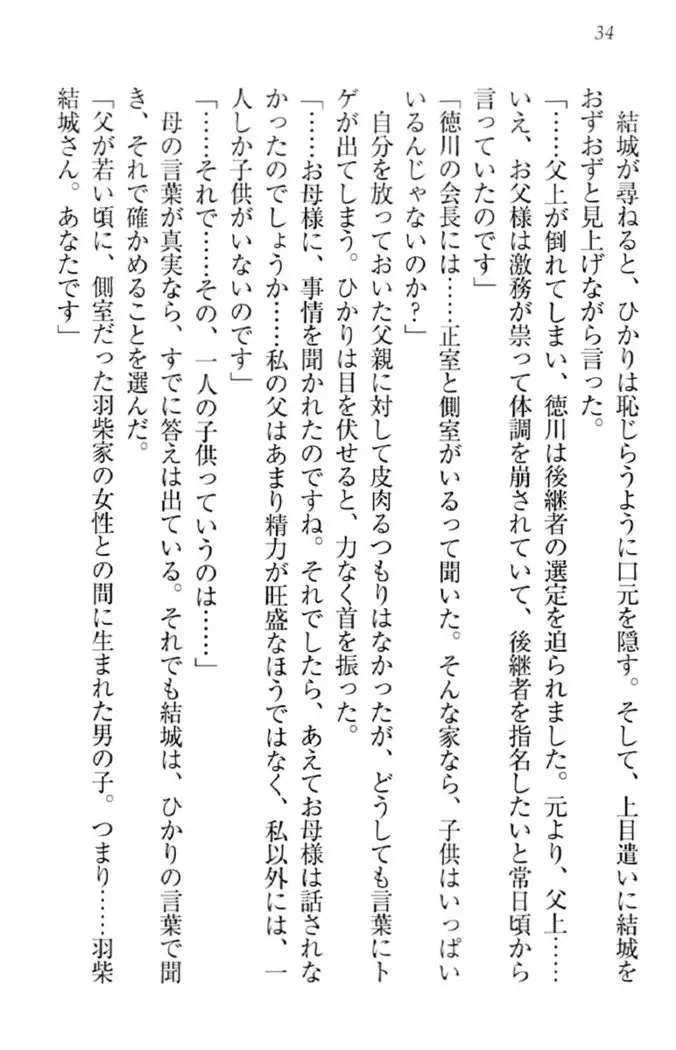 34
結城が尋ねると、ひかりは恥じらうように口元を隠す。そして、上目遣いに結城を
おずおずと見上げながら言った。
「……父上が倒れてしまい、徳川は後継者の選定を迫られました。元より、父上……
いえ、お父様は激務が祟って体調を崩されていて、後継者を指名したいと常日頃から
言っていたのです」
「徳川の会長には……正室と側室がいるって聞いた。そんな家なら、子供はいっぱい
いるんじゃないのか？」
自分を放っておいた父親に対して皮肉るつもりはなかったが、どうしても言葉にト
ゲが出てしまう。ひかりは目を伏せると、力なく首を振った。
「……お母様に、事情を聞かれたのですね。それでしたら、あえてお母様は話されな
かったのでしょうか……私の父はあまり精力が旺盛なほうではなく、私以外には、一
人しか子供がいないのです」
「……それで……その、一人の子供っていうのは……」
母の言葉が真実なら、すでに答えは出ている。それでも結城は、ひかりの言葉で聞
き、それで確かめることを選んだ。
「父が若い頃に、側室だった羽柴家の女性との間に生まれた男の子。つまり……羽柴
結城さん。あなたです」